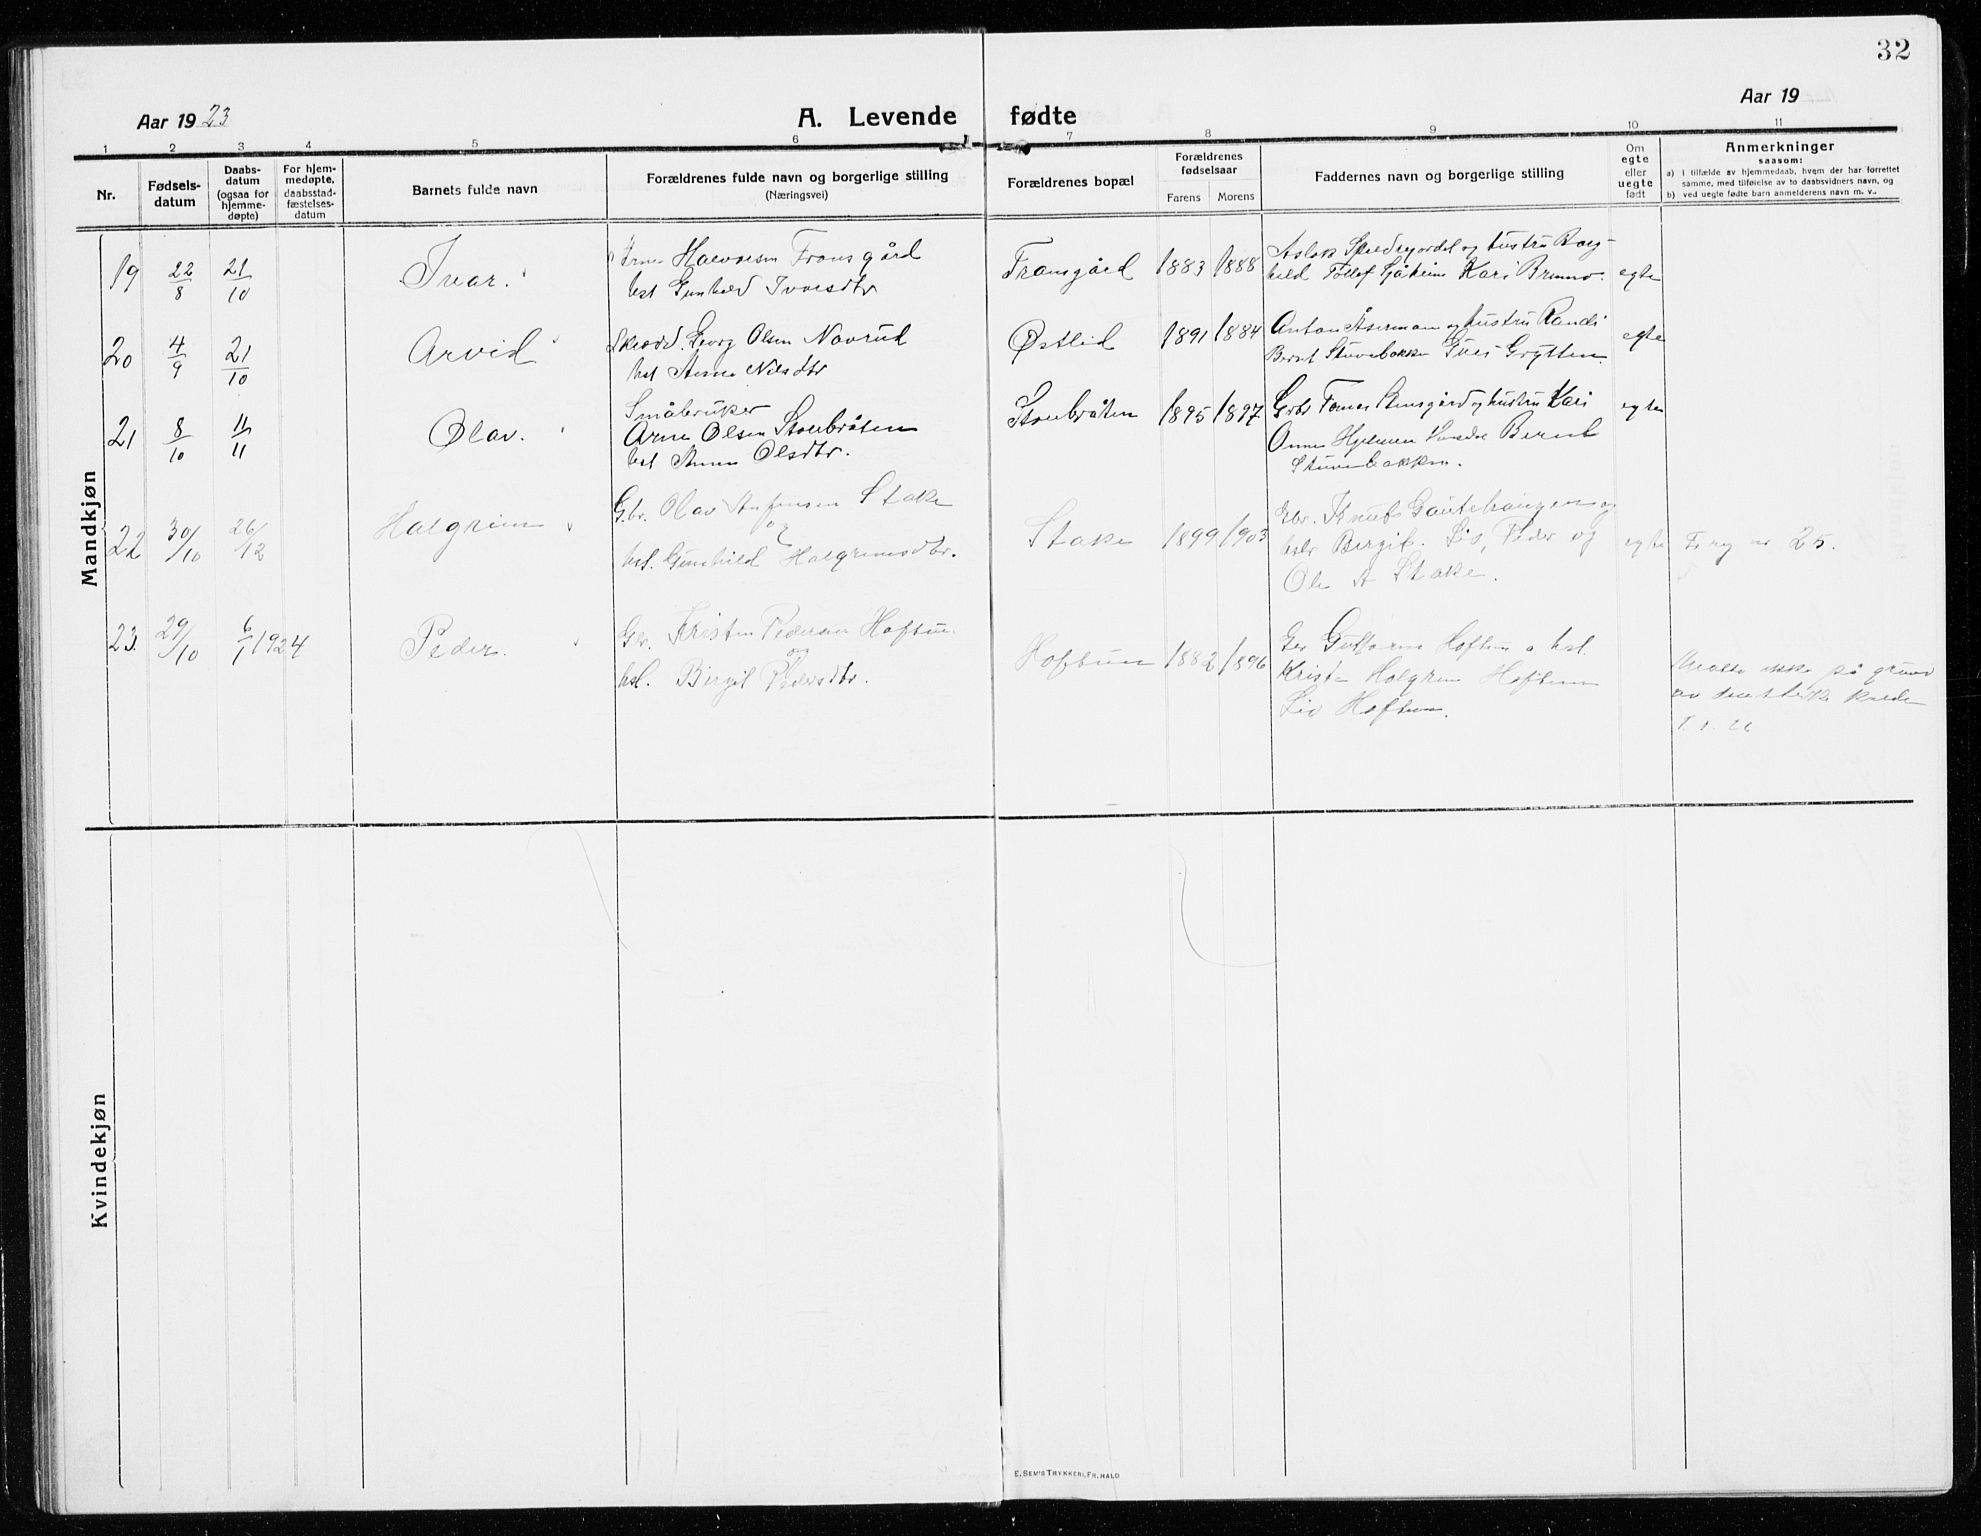 32
Aar 1923
A. Levende fødte
Aar 19
1 2 3 4 5 6 7 8 9 10 11
Nr.
Fødsels-
datum
Daabs-
datum
(ogsaa for
hjemme-
døpte)
For hjem-
medøpte,
daabsstad-
fæstelses-
datum
Barnets fulde navn
Forældrenes fulde navn og borgerlige stilling
(Næringsvei)
Forældrenes bopæl
Forældrenes
fødselsaar
Farens Morens
Faddernes navn og borgerlige stilling
Om
egte
eller
uegte
født
Anmerkninger
saasom:
a) i tilfælde av hjemmedaab, hvem der har forrettet
samme, med tilføielse av to daabsvidners navn, og
b) ved uegte fødte barn anmelderens navn m. v..
Mandkjøn
19 22/8 21/10 Ivar.
Arne Halvorsen Fransgård
hst Gunhild Ivarsdtr
Fransgård 1883 1888
Aslak og hustru Borg-
hild Tollef Kari
egte
20 4/9 21/10 Arvid
Georg Olsen Navrud
hst Anne Nilsdtr
Østlid 1891 1884
Anton og hustru Randi
Bernt Stuvebakke Grytten.
egte
21 8/10 11/11 Olav.
Småbruker
Arne Olsen Stenbråten
hst Anne Olsdtr.
Stenbråten 1895 1897
Gbr og hustru Kari
Bernt
Stuvebakken.
egte
22 30/10 26/12 Halgrim
Gbr. Olav Stake
og
hst. Gunhild Halgrimsdtr.
Stake 1899 1903
Gbr. Knut og
Birgit. Liv, Peder og
Ole A Stake.
egte nr 25.
23. 29/10 6/1 1924 Peder.
Gbr. Kristen Pedersen Hoftun
og
hst. Birgit Pedersdtr.
Hoftun 1882 1896
Guttorm Hoftun o hst.
Kristen Halgrim Hoftun
Liv Hoftun.
ikke på grund
av kulde
Kvindekjøn
E. SEM'S TRYKKERI, FR. HALD